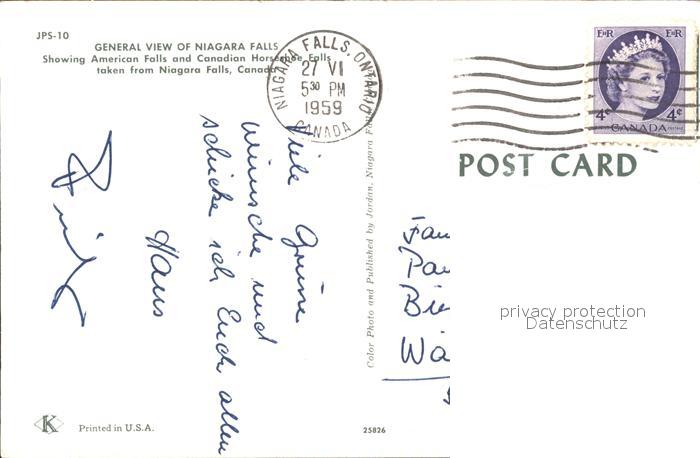 JPS-10
GENERAL VIEW OF NIAGARA FALLS
Showing American Falls and Canadian Horseshoe Falls
taken from Niagara Falls, Canada
NIAGARA FALLS, ONTARIO
27 VI
5³⁰ PM
1959
CANADA
E II R E II R
4¢ 4¢
CANADA
POSTAGE
POST CARD
Viele Grüsse
wünsche und
schicke ich Euch allen
Hans
Color Photo and Published by Jordan, Niagara
Fam
Pau
Bie
Wa
privacy protection
Datenschutz
K
Printed in U.S.A.
25826